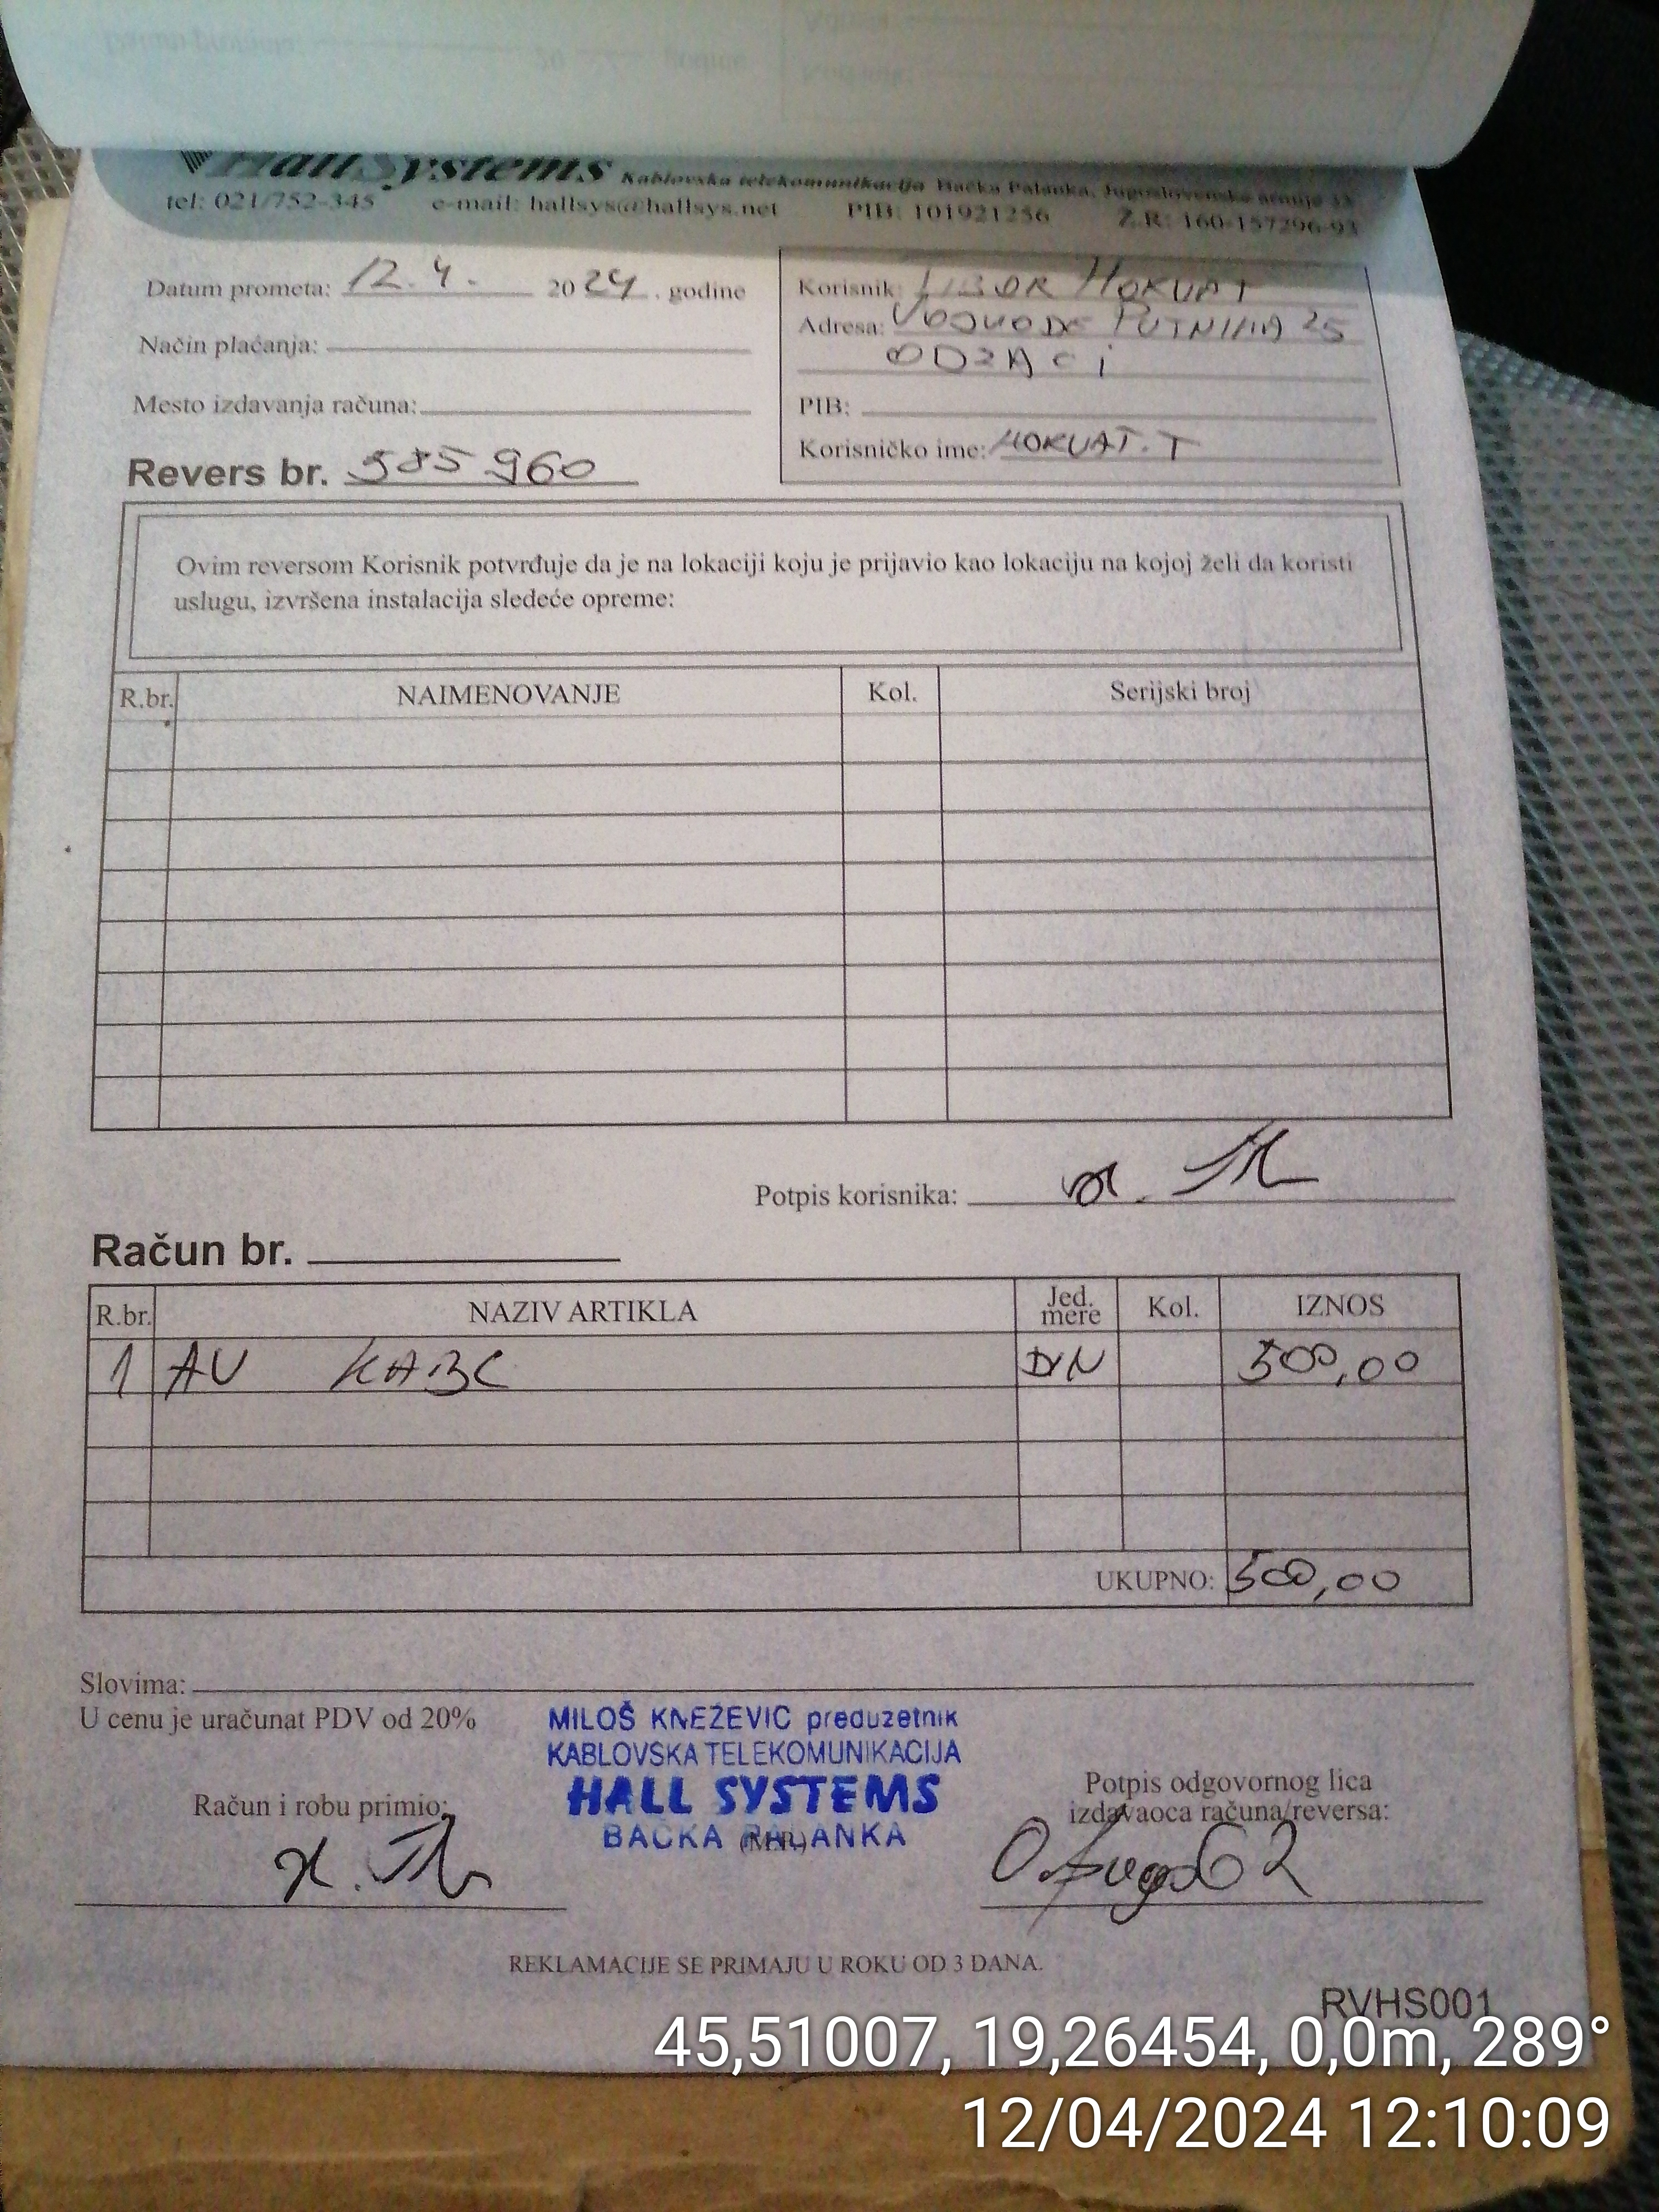 HallSystems Kablovska telekomunikacija Bačka Palanka, Jugoslovenske armije 33
tel: 021/752-345 e-mail: hallsys@hallsys.net PIB: 101921256 Ž.R: 160-157296-93
Datum prometa: 12.4. 2024. godine
Način plaćanja:
Mesto izdavanja računa:
Revers br. 585960
Korisnik: TIBOR HORVAT
Adresa: VOJVODE PUTNIKA 25
ODZACI
PIB:
Korisničko ime: HORVAT.T
Ovim reversom Korisnik potvrđuje da je na lokaciji koju je prijavio kao lokaciju na kojoj želi da koristi
uslugu, izvršena instalacija sledeće opreme:
R.br. NAIMENOVANJE Kol. Serijski broj
Potpis korisnika:
Račun br.
R.br. NAZIV ARTIKLA Jed. mere Kol. IZNOS
1 AV KABL DIN 500,00
UKUPNO: 500,00
Slovima:
U cenu je uračunat PDV od 20%
MILOŠ KNEŽEVIĆ preduzetnik
KABLOVSKA TELEKOMUNIKACIJA
HALL SYSTEMS
BAČKA PALANKA
(M.P.)
Račun i robu primio:
Potpis odgovornog lica
izdavaoca računa/reversa:
REKLAMACIJE SE PRIMAJU U ROKU OD 3 DANA.
RVHS001
45,51007, 19,26454, 0,0m, 289°
12/04/2024 12:10:09